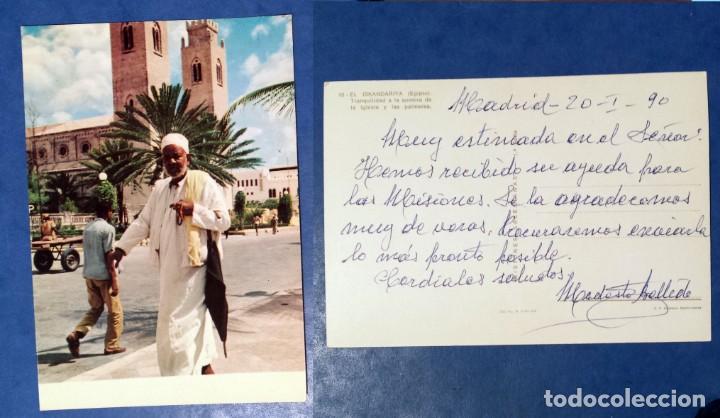 10 - EL ISKANDARIYA (Egipto).
Tranquilidad a la sombra de
la Iglesia y las palmeras.
Madrid - 20 - I - 90
Muy estimada en el Señor:
Hemos recibido su ayuda para
las Misiones. Se la agradecemos
muy de veras, procuraremos enviarla
lo más pronto posible.
Cordiales saludos
todocoleccion